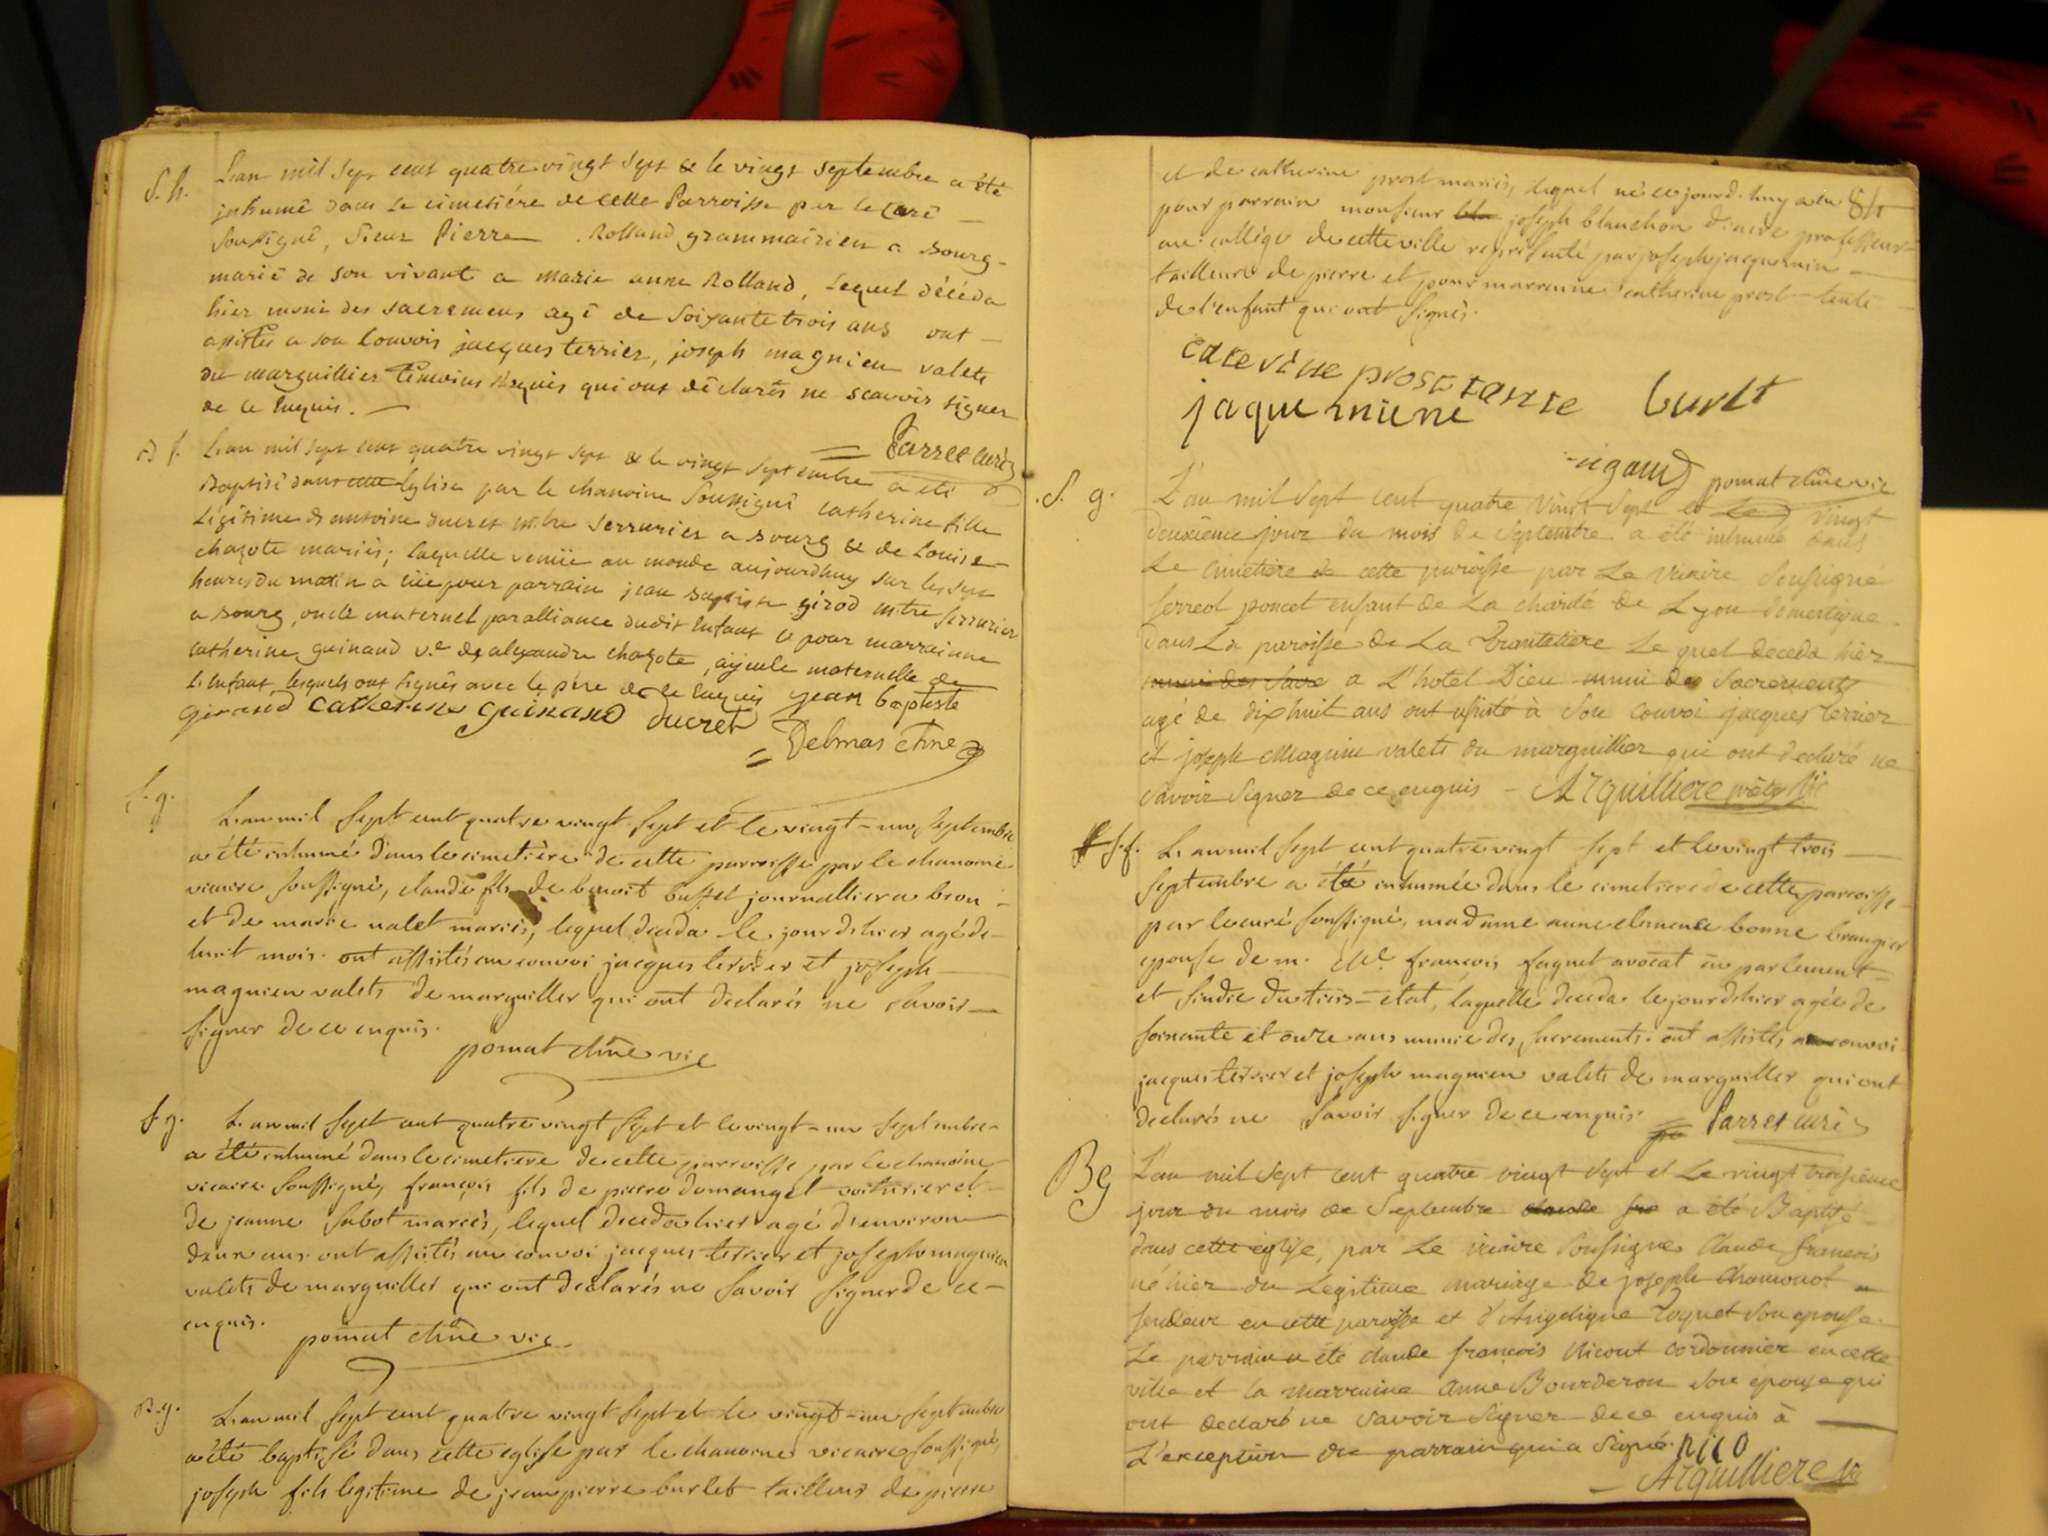 S. h. L'an mil sept cent quatre vingt sept & le vingt septembre a été
inhumé dans le cimetière de cette Parroisse par le Curé
soussigné, sieur Pierre Rolland grammairien a Bourg
marié de son vivant a marie anne Rolland, lequel décéda
hier muni des sacremens agé de soixante trois ans ont
assistés a son convois jacques terrier, joseph magnien valets
du marguillier témoins requis qui ont déclarés ne scavoir signer
de ce enquis.
Parret curé
B f. L'an mil sept cent quatre vingt sept & le vingt septembre a été
Baptisé dans cette Eglise par le chanoine Soussigné catherine fille
Légitime d'antoine ducret mtre serrurier a Bourg & de Louise
chazote mariés; laquelle venüe au monde aujourdhuy sur les sept
heures du matin a eüe pour parrain jean Baptiste girod mtre serrurier
a Bourg, oncle maternel par alliance dudit Enfant & pour marrainne
catherine guinand v.e d'alexandre chazote, ayeule maternelle de
L'enfant, lesquels ont signés avec le père de ce Enquis jean baptiste
catherine guinand ducret
Delmas chne
S. g. L'an mil sept cent quatre vingt sept et le vingt-un septembre
a été inhumé dans le cimetière de cette parroisse par le chanoine
vicaire soussigné, claude fils de benoit buffet journallier a brou
et de marie nalet mariés, lequel deceda le jour d'hier agé de
huit mois. ont assistés au convoi jacques terrier et joseph
magnien valets de marguiller qui ont déclarés ne savoir
signer de ce enquis.
pomat chne vic
S. g. L'an mil sept cent quatre vingt sept et le vingt-un septembre
a été inhumé dans le cimetiere de cette parroisse par le chanoine
vicaire soussigné, françois fils de pierre domangel voiturier et
de jeanne sabot mariés, lequel deceda hier agé d'environ
deux ans. ont assistés au convoi jacques terrier et joseph magnien
valets de marguiller qui ont déclarés ne savoir signer de ce
enquis.
pomat chne vic
B. g. L'an mil sept cent quatre vingt sept et le vingt-un septembre
a été baptisé dans cette eglise par le chanoine vicaire soussigné,
joseph fils legitime de jean pierre burlet tailleur de pierre
et de catherine prost mariés, lequel né ce jourd'huy a eu
pour parrain monsieur joseph blanchon diacre professeur
au collége de cette ville représenté par joseph jacquemin
tailleur de pierre et pour marraine catherine prost tente
de l'enfant qui ont signés.
caterine prost tante burlt
jaquemine
rigaud pomat chne vic
S. g. L'an mil sept cent quatre vingt sept et le vingt
deuxieme jour du mois de Septembre a été inhumé dans
Le cimetière de cette paroisse par Le Vicaire soussigné
ferreol poncet enfant de La charité de Lyon domestique
dans La paroisse de La Tranclière Le quel deceda hier
muni des sacre a L'hotel Dieu muni des Sacrements
agé de dix huit ans ont assisté à son convoi jacques terrier
et joseph Magnin valets du marguillier qui ont declaré ne
savoir signer de ce enquis - Arquilliere prêtre vic
S. f. L'an mil sept cent quatre vingt sept et le vingt trois
septembre a été inhumée dans le cimetiere de cette parroisse
par le curé soussigné, madame anne clemence bonne brangier
epouse de m. Me françois faguet avocat en parlement
et sindic du tiers-etat, laquelle deceda le jour d'hier agée de
soixante et onze ans munie des sacrements. ont assistés au convoi
jacques terrier et joseph magnien valets de marguiller qui ont
declarés ne savoir signer de ce enquis. Parret curé
B g L'an mil sept cent quatre vingt sept et Le vingt troisième
jour du mois de Septembre claude fra a été Baptisé
dans cette eglise, par Le vicaire soussigné Claude françois
né hier du Legitime mariage de joseph Chamonot
fendeur en cette paroisse et d'Angelique Toquet son epouse.
Le parrain a été claude françois Nicout cordonnier en cette
ville et la marraine Anne Bourderon son epouse qui
ont declaré ne savoir signer de ce enquis à
L'exception du parrain qui a signé. nico
Arquilliere vic